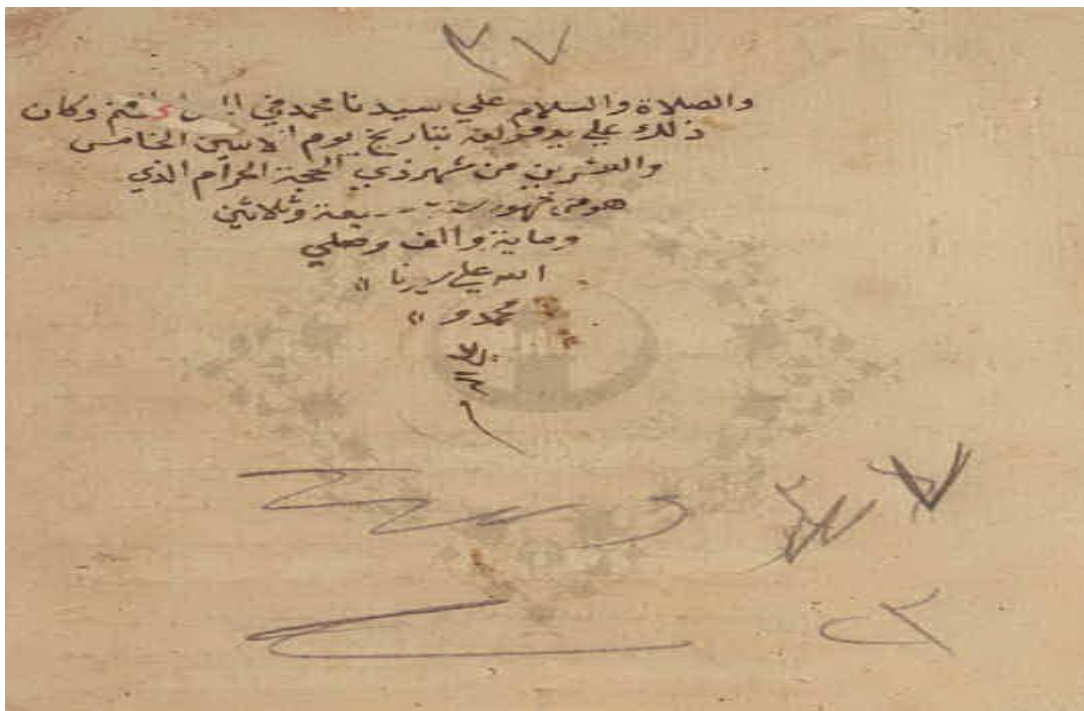 ٣٧
والصلاة والسلام علي سيدنا محمد في وكان
ذلك علي يد مؤلفه بتاريخ يوم الاثنين الخامس
والعشرين من شهر ذي الحجة الحرام الذي
هو من شهور سنة وثلاثين
وماية والف وصلي
الله علي سيدنا
محمد و
علي اله